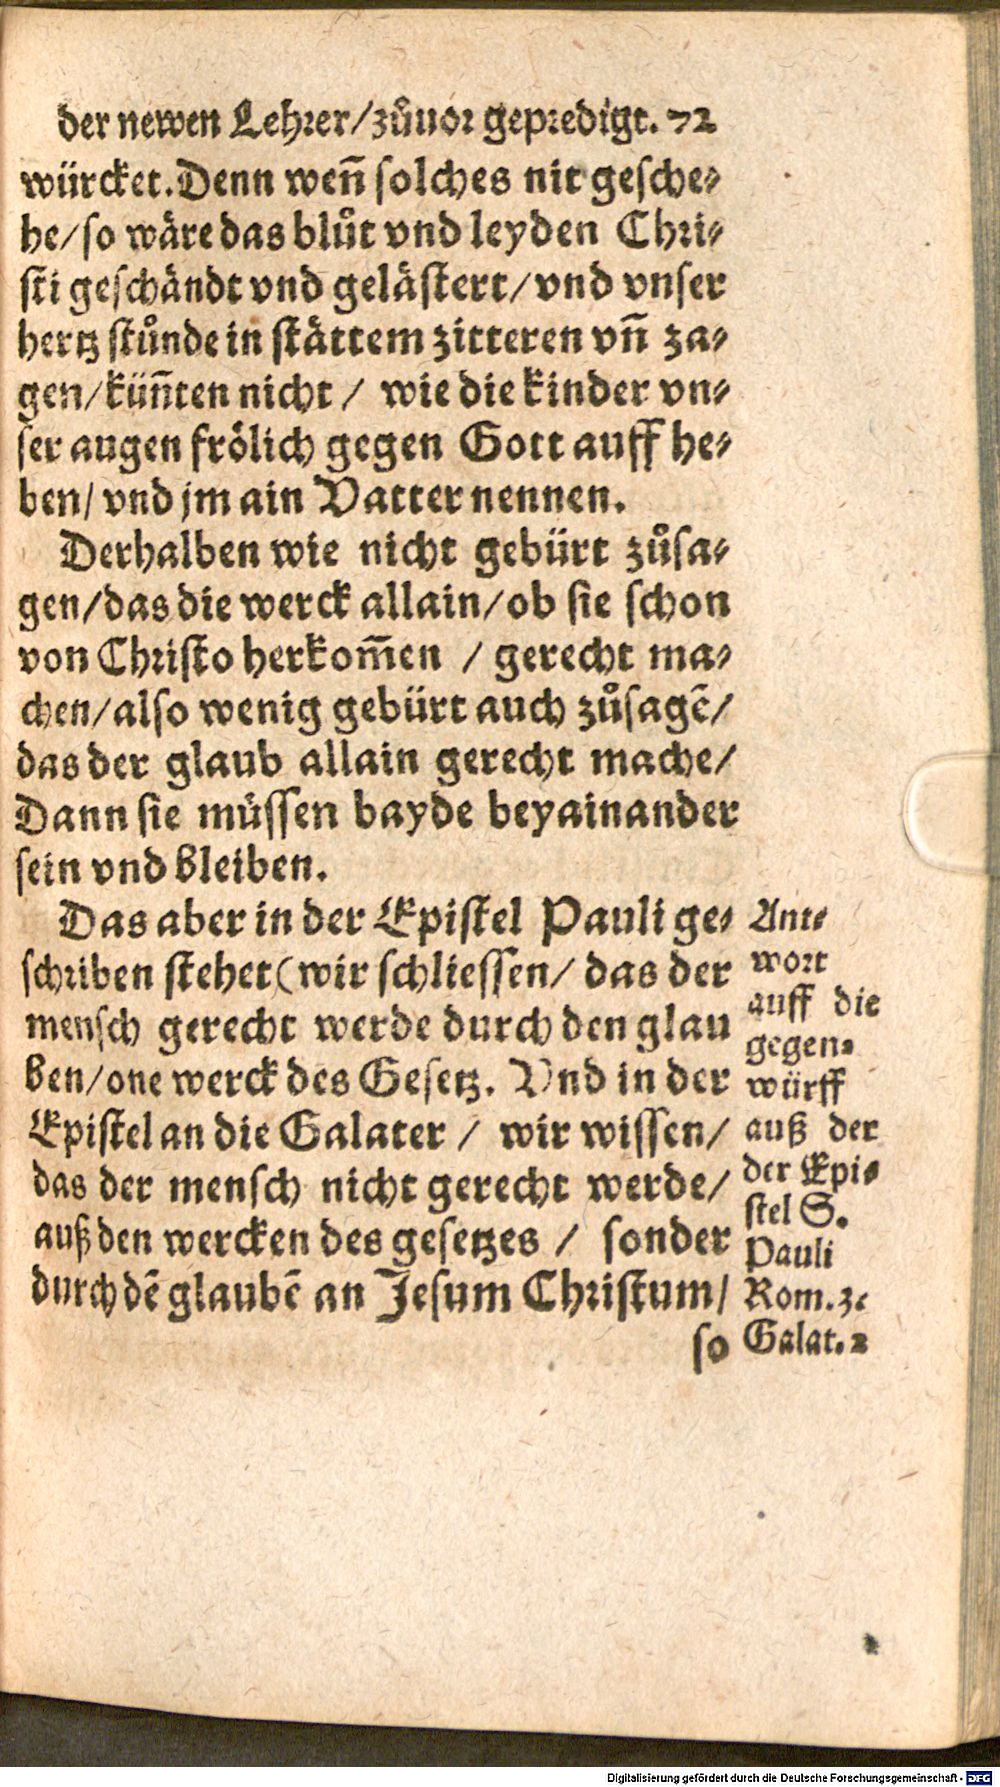 der newen Lehrer/zůuor gepredigt. 72
würcket. Denn weñ solches nit gesche-
he/so wäre das blůt vnd leyden Chri-
sti geschändt vnd gelästert/vnd vnser
hertz stůnde in stättem zitteren vñ za-
gen/küñten nicht / wie die kinder vn-
ser augen frölich gegen Gott auff he-
ben/vnd jm ain Vatter nennen.
Derhalben wie nicht gebürt zůsa-
gen/das die werck allain/ob sie schon
von Christo herkom̃en / gerecht ma-
chen/also wenig gebürt auch zůsagẽ/
das der glaub allain gerecht mache/
Dann sie müssen bayde beyainander
sein vnd bleiben.
Das aber in der Epistel Pauli ge-
schriben stehet (wir schliessen/ das der
mensch gerecht werde durch den glau
ben/one werck des Gesetz. Vnd in der
Epistel an die Galater / wir wissen/
das der mensch nicht gerecht werde/
auß den wercken des gesetzes / sonder
durch dẽ glaubẽ an Jesum Christum/
so
Ant-
wort
auff die
gegen-
würff
auß der
der Epi-
stel S.
Pauli
Rom. 3.
Galat. 2
Digitalisierung gefördert durch die Deutsche Forschungsgemeinschaft - DFG